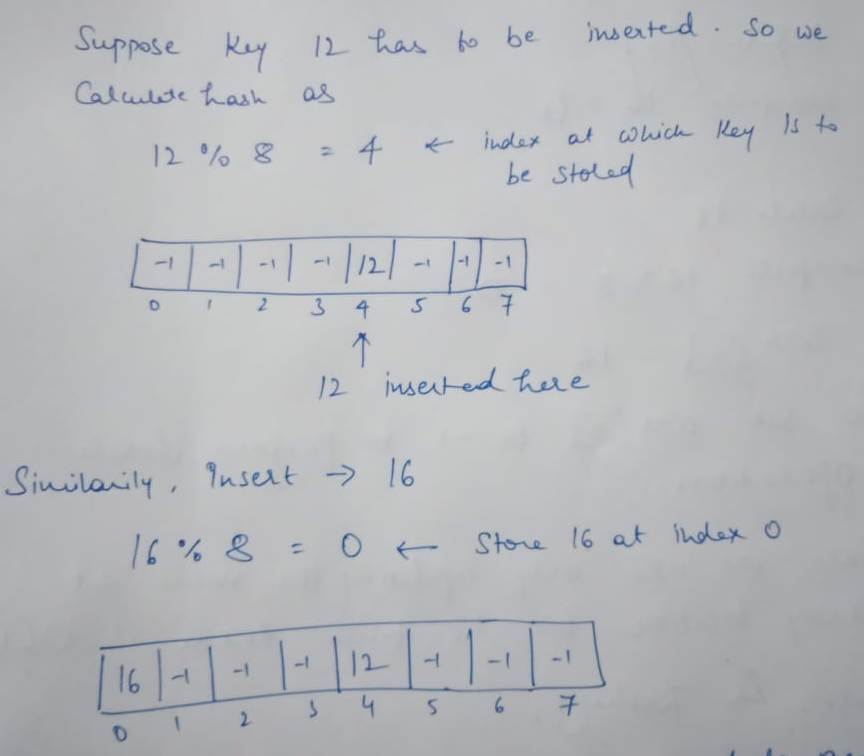 Suppose Key 12 has to be inserted. So we
Calculate hash as
12 % 8 = 4 ← index at which Key Is to
be stoled
-1 | -1 | -1 | -1 | 12 | -1 | -1 | -1
0 1 2 3 4 5 6 7
↑
12 inserted here
Similarily, Insert → 16
16 % 8 = 0 ← Store 16 at index 0
16 | -1 | -1 | -1 | 12 | -1 | -1 | -1
0 1 2 3 4 5 6 7